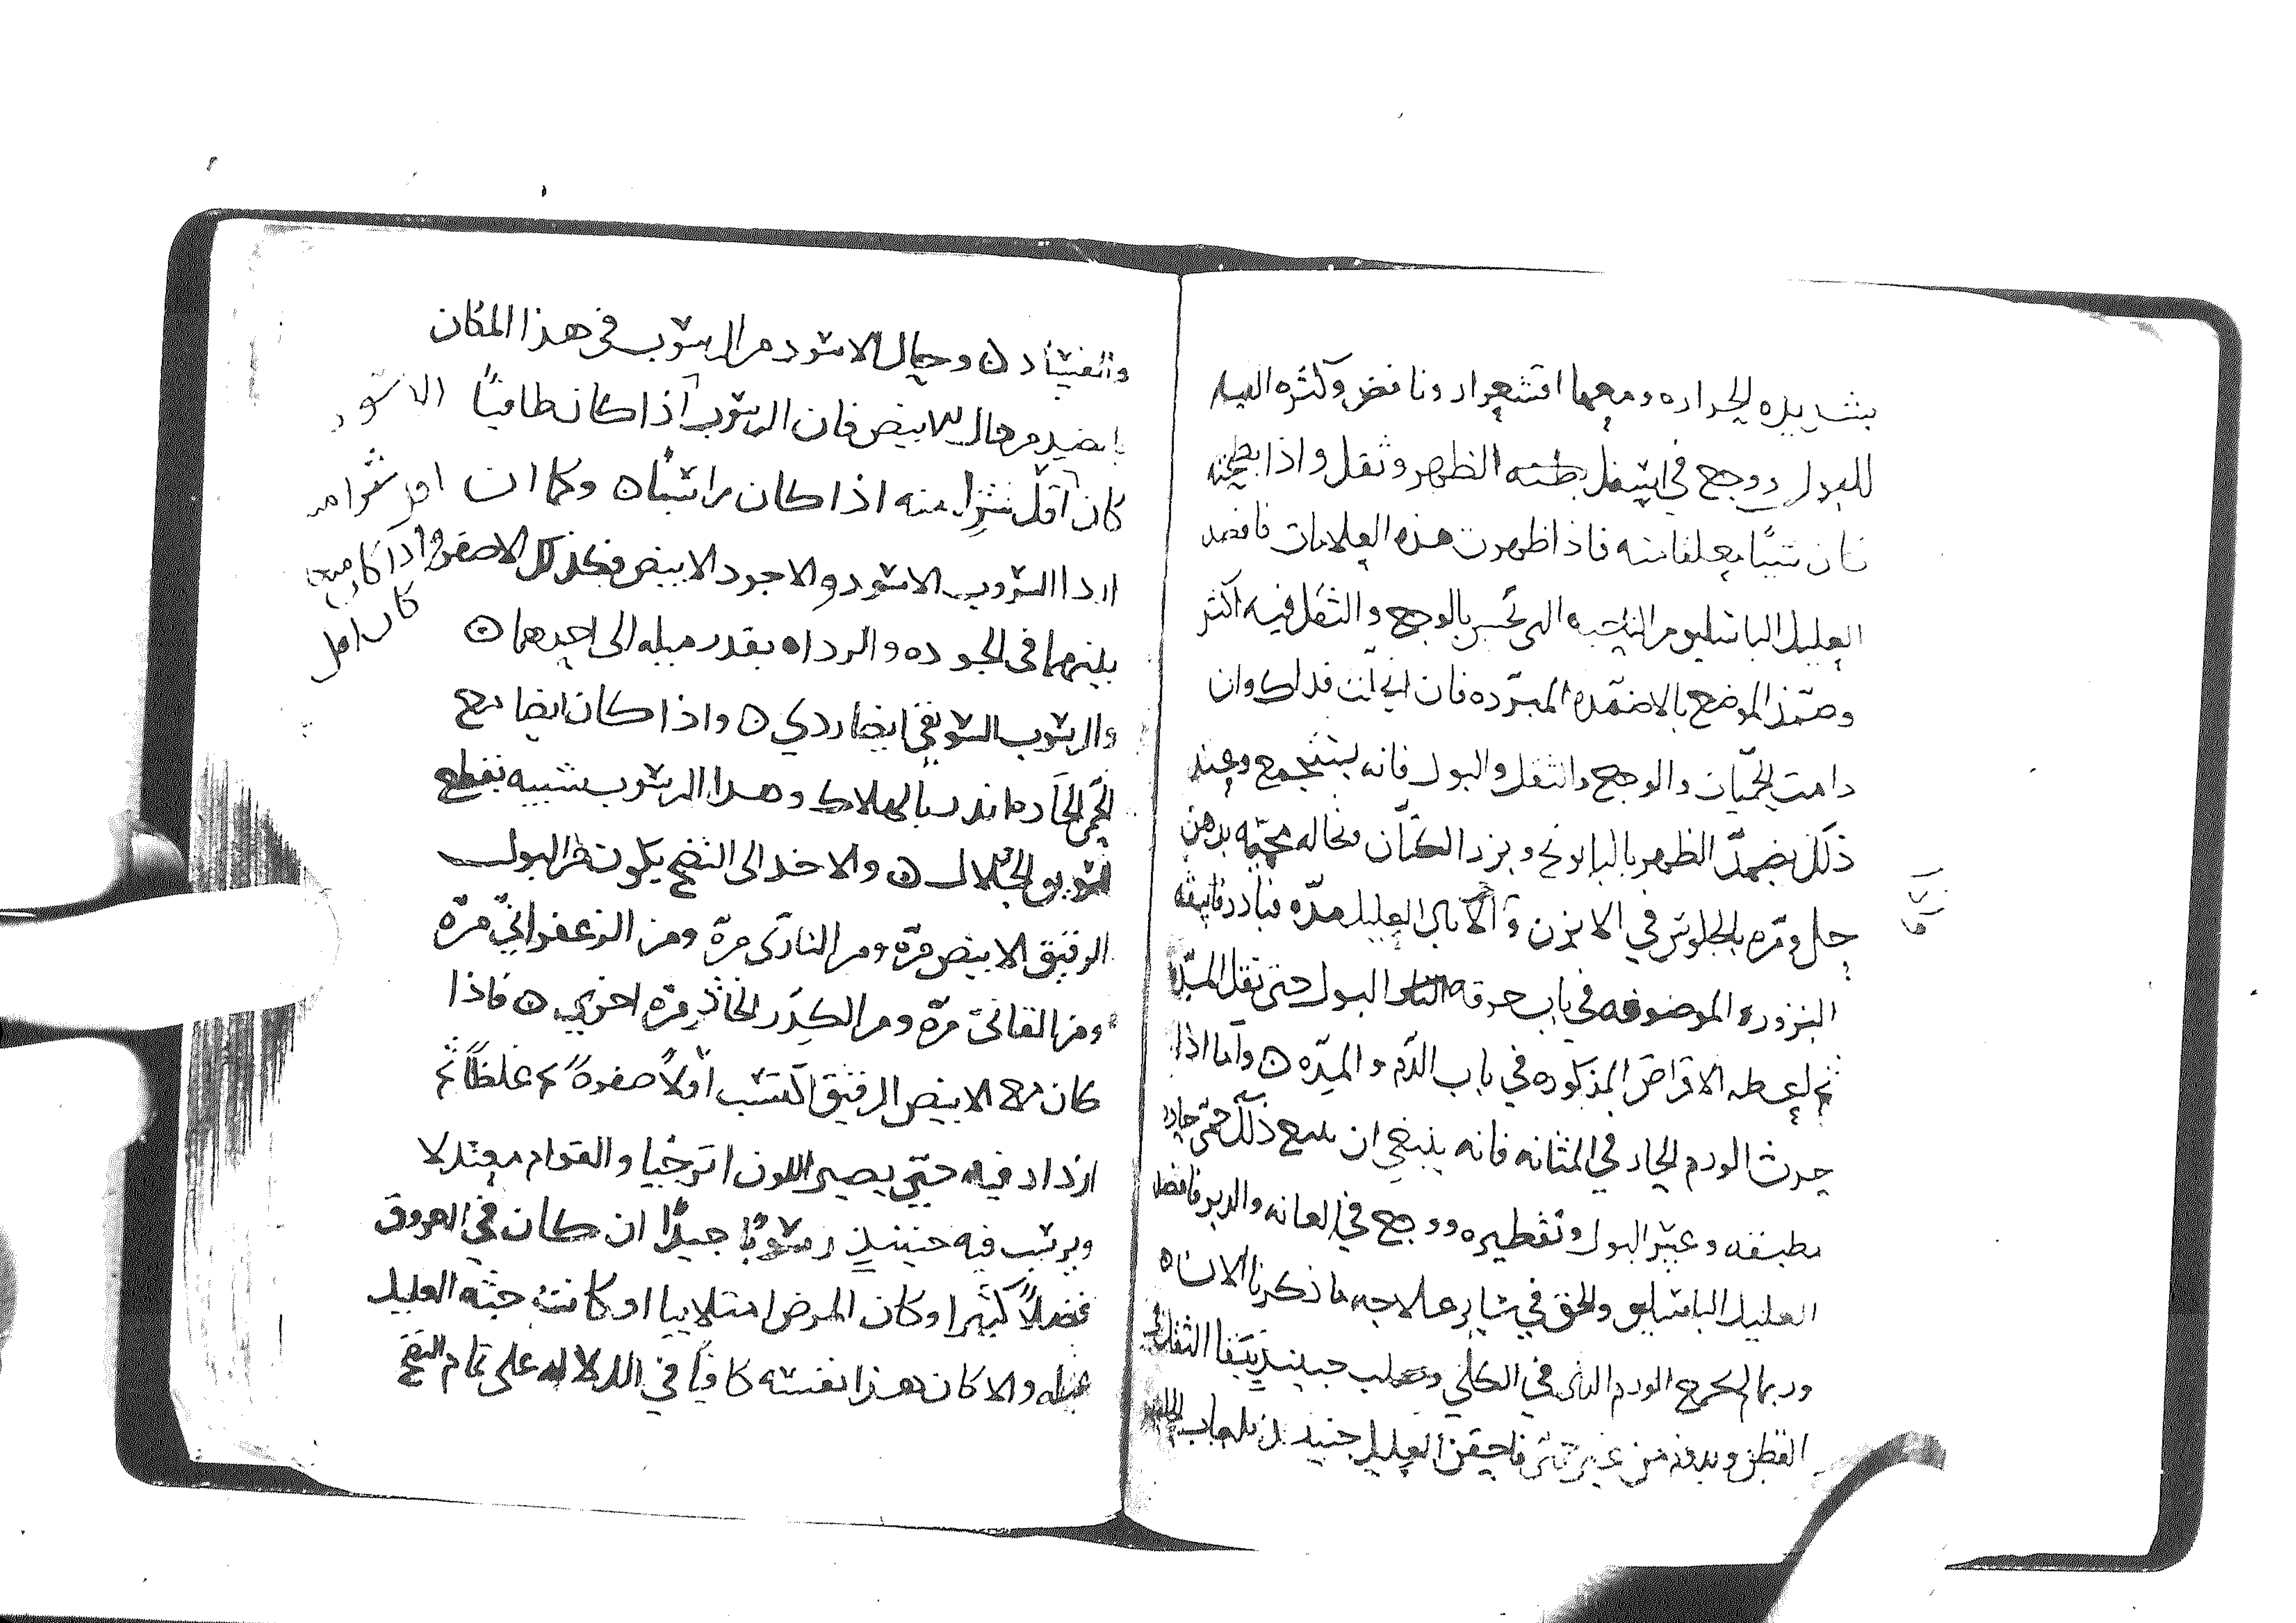 شديده الحراره ومعها اقشعرار ونافض وكثره
للبول ووجع في اسفل الظهر وثقل واذا
كان شيئا معلقا منه فاذا ظهرت هذه العلامات فافصد
العليل الباسليق من الناحيه التي تحس بالوجع والثقل فيه اكثر
وضمد الموضع بالاضمده المبرده فان انحلت فذلك وان
دامت الحميات والوجع والثقل والبول فانه يستجمع وعند
ذلك يضمد الظهر بالبابونج وبزر الكتان ونخاله بدهن
حل ومره بالجلوس في الابزن العليل مده فبادر
البزوره الموصوفه في باب حرقه البول حتى تقل المده
ثم اعطه الاقراص المذكوره في باب الدم والمده ٥ واما اذا
حدث الورم الحار في المثانه فانه ينبغي ان ذلك حمى حاده
مطبقه وعسر البول وتقطيره ووجع في العانه والدبر فافصد
العليل الباسليق والحق في ساير علاجه ما ذكرنا الان ٥
وربما لم الورم في الكلى وصلب حينئذ الثقل في
القطن من غير حمى فاحقن العليل حينئذ بلعاب
والفساد ٥ وحال الاسود من الرسوب في هذا المكان
بالضد من حال الابيض فان الرسوب اذا كان طافيًا
كان اقل شرا منه اذا كان راسبًا ٥ وكما ان
اردا الرسوب الاسود والاجود الابيض فكذلك الاصفر
بينهما في الجوده والرداه بقدر ميله الى احدهما ٥
والرسوب السويقي ايضا ردي ٥ واذا كان ايضا مع
الحمى الحاده انذر بالهلاك وهذا الرسوب شبيه بقطع
سويق الجلال ٥ والاخذ الى النضج يكون من البول
الرقيق الابيض مرّة ومن الناري مرّة ومن الزعفراني مرّة
ومن القاني مرّة ومن الكدر الخاثر مرّة اخرى ٥ فاذا
كان من الابيض الرقيق اكتسب اولًا صفرةً ثم غلظًا ثم
ازداد فيه حتى يصير اللون اترجيا والقوام معتدلا
ويرسب فيه حينئذ رسوبًا جيدًا ان كان في العروق
فضلًا كثيرا وكان المرض امتلاييا او كانت جثه العليل
عبله والا كان هذا نفسه كافيًا في الدلاله على تمام النضج
الاسود
اقل شرا منه
واذا كان
كان اقل